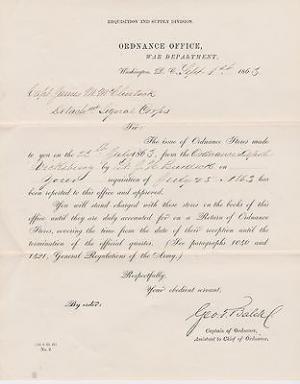 REQUISITION AND SUPPLY DIVISION.
ORDNANCE OFFICE,
WAR DEPARTMENT,
Washington, D. C., Sept 1st 1863
Capt James M McClintock
Signal Corps
SIR:
The issue of Ordnance Stores made
to you on the 25th July 1863, from the Ordnance Depot
Vicksburg by
Your requisition of July 25 1863 has
been reported to this office and approved.
You will stand charged with these stores on the books of this
office until they are duly accounted for on a Return of Ordnance
Stores, covering the time from the date of their reception until the
termination of the official quarter. (See paragraphs 1030 and
1421, General Regulations of the Army.)
Respectfully,
Your obedient servant,
By order:
Geo. T. Balch
Captain of Ordnance,
Assistant to Chief of Ordnance.